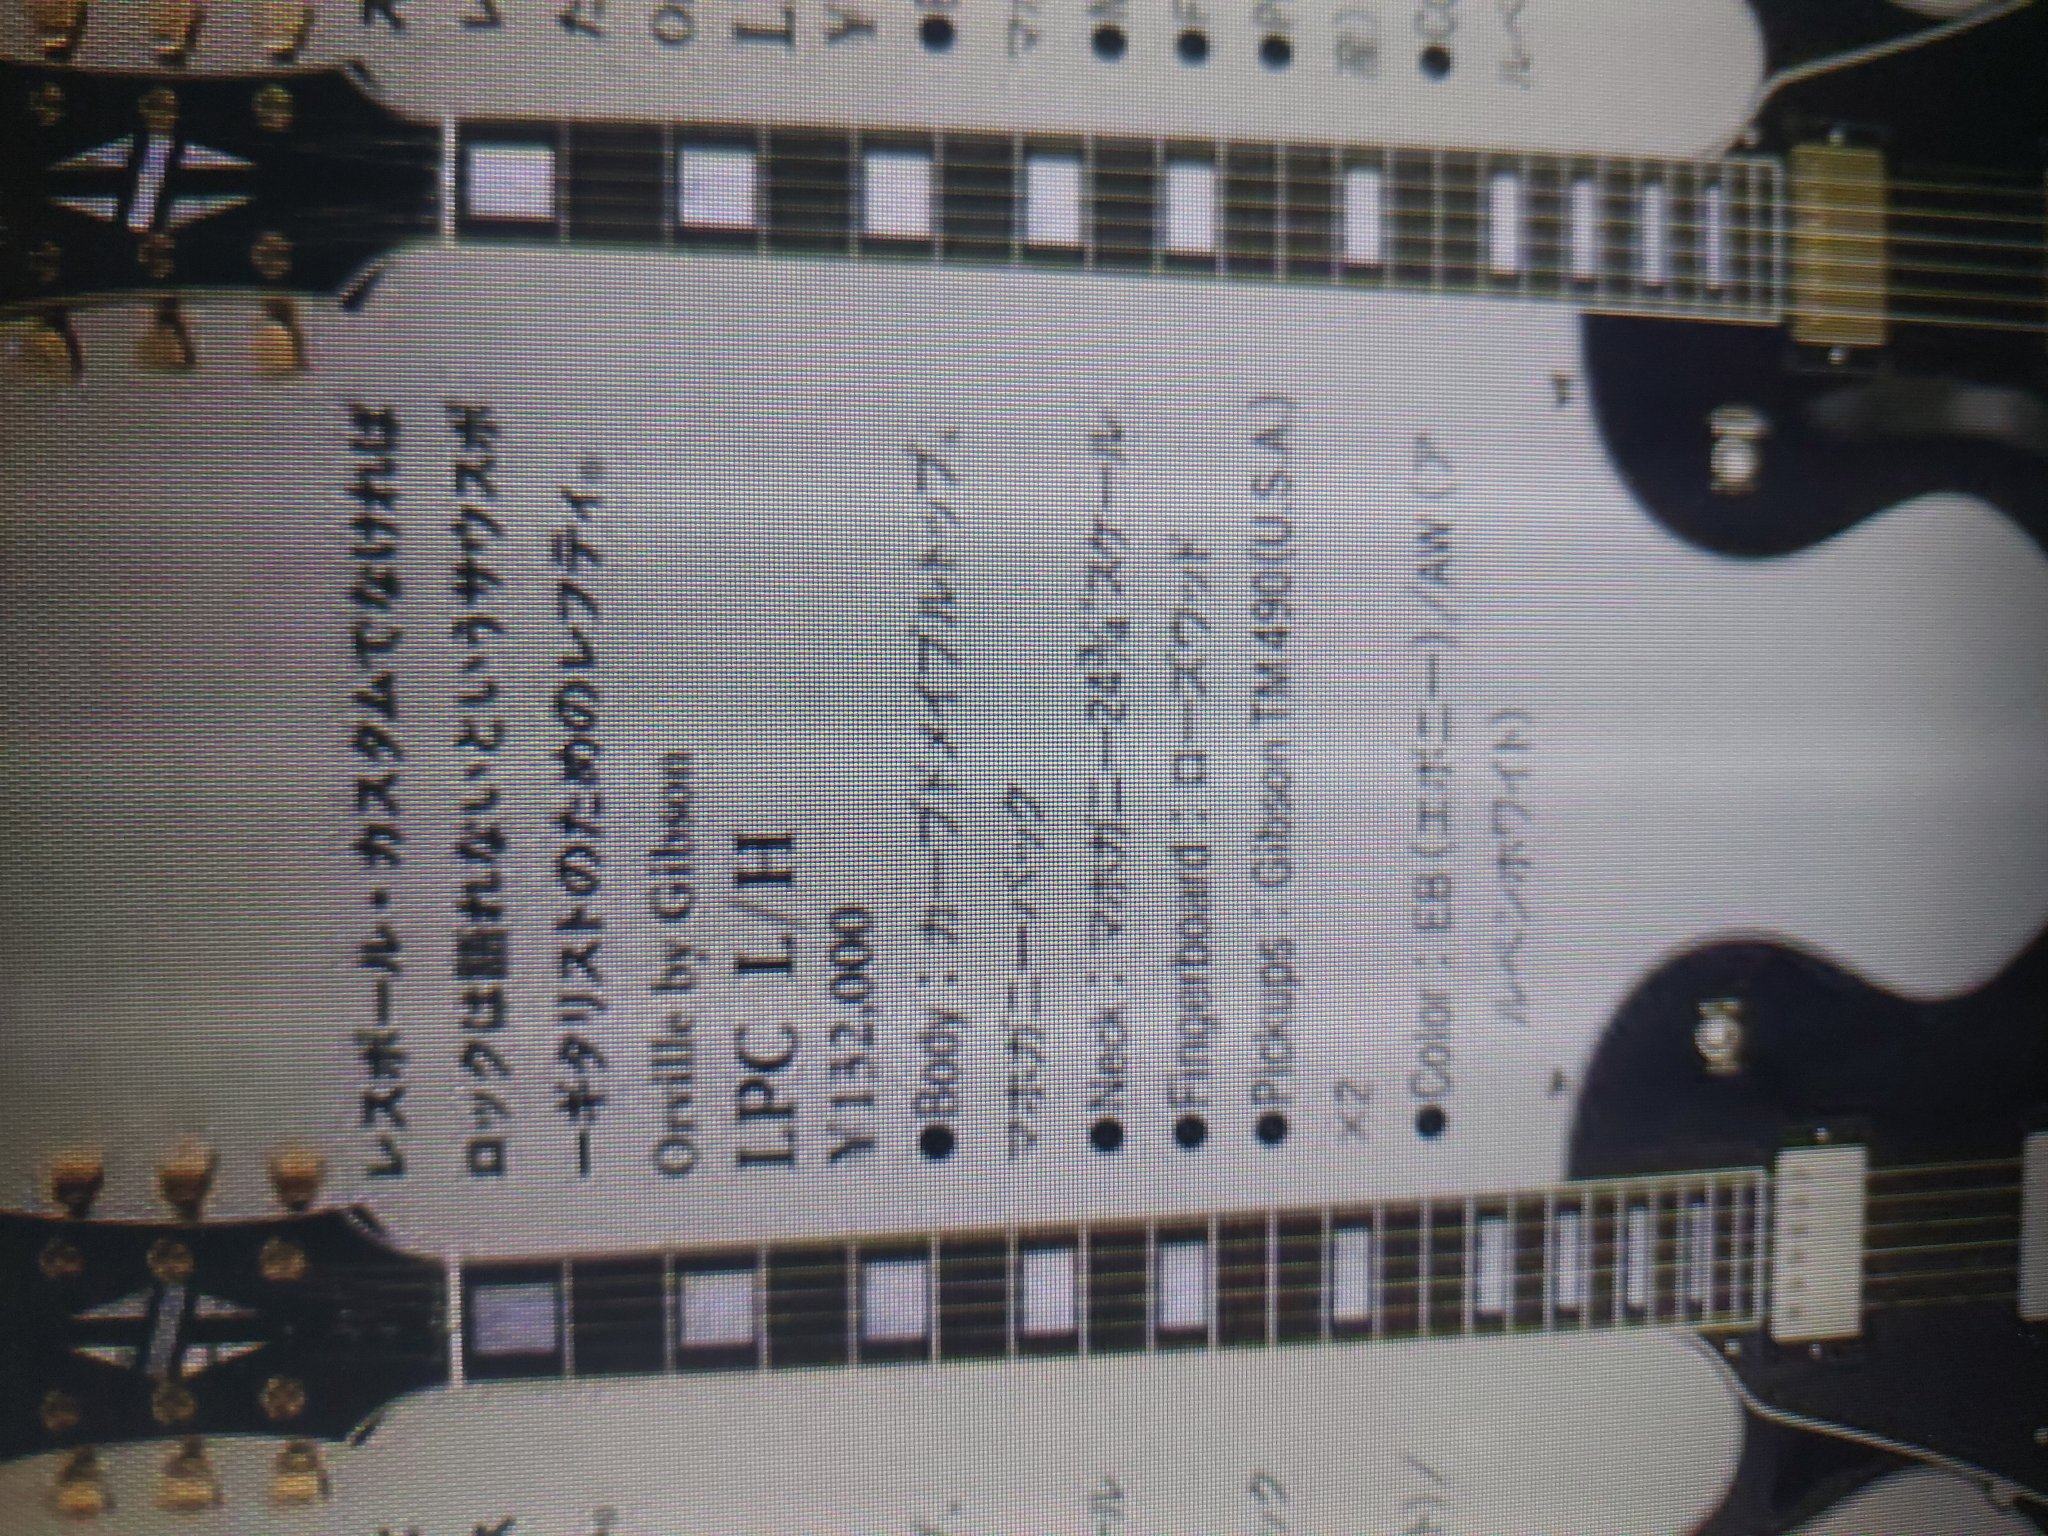 レスポール・カスタムでなければ
ロックは語れないというサウスポ
ーギタリストのためのレフティ。
Orville by Gibson
LPC L/H
¥132,000
●Body：カーブドメイプルトップ、
マホガニーバック
●Neck：マホガニー24¾"スケール
●Fingerboard：ローズウッド
●Pickups：Gibson TM490(U.S.A)
×2
●Color：EB(エボニー)/AW(ア
ルペンホワイト)